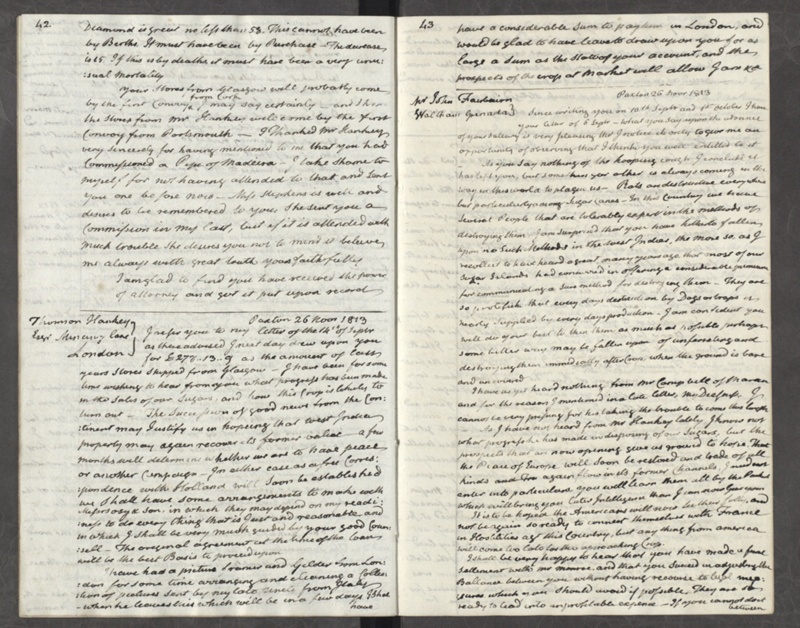 42.
Diamond is great no less than 53. This cannot have been
by Berths It must have been by Purchase - The decrease
is 15 If this is by deaths it must have been a very unu:
:sual Mortality
Your Stores from Glasgow will probably come
by the first Convoy from Cork I may say certainly and then
the Stores from Mr Hankey will come by the first
Convoy from Portsmouth - I Thanked Mr Hankey
very sincerely for having mentioned to me that you had
Commissioned a Pipe of Madeira - I take shame to
myself for not having attended to that and sent
you one before now - Miss Stephens is well and
desires to be remembered to you, She sent you a
Commission in my last, but if it is attended with
much trouble She desires you not to mind it believe
me always with great truth yours faithfully
I am glad to find you have received the power
of attorney and got it put upon record
Paxton 26 Novr 1813
Thomson Hankey
Esqr Mincing Lane
London
I refer you to my letter of the 14th of Septr
as there advised I next day drew upon you
for £278.13.9 as the amount of last
years Stores shipped from Glasgow - I have been for some
time wishing to hear from you what progress has been made
in the Sales of our Sugars, and how this Crop is likely to
turn out - The Succession of good news from the Con:
:tinent may Justify us in hopeing that West India
property may again recover its former value a few
months will determine whether we are to have peace
or another Campaign - In either case a free Corres:
:pondence with Holland will soon be established
we shall have some arrangements to make with
& Son. in which they may depend on my readi:
:ness to do every thing that is Just and reasonable and
in which I shall be very much guided by your good Coun:
:sell - The original agreement at the time of the Loan
will be the best Basis to proceed upon
I have had a picture framer and Gilder from Lon:
:don for some time arranging and cleaning a Collec:
:tion of pictures sent by my late Uncle from Italy
- when he leaves this which will be in a few days I shall
have
43
have a considerable Sum to pay him in London, and
would be glad to have leave to draw upon you for as
large a Sum as the State of your account, and the
prospects of the crop at Market will allow I am &c
Paxton 26 Novr 1813
Mr John Fairbairn
Waltham Grenada
Since writing you on 14th Septr and 1st October I have
your letter of 6 Septr - What you say upon the utterance
of your Salary is very pleasing tho I notice it only to give me an
opportunity of observing that I think you well entitled to it
As you say nothing of the hooping cough I conclude it
has left you, but some thing or other is always coming in the
way in this world to plague us - Rats are destructive everywhere
but particularly among Sugar canes - In this Country we have
several People that are tolerably expert in the methods of
destroying them I am surprised that you have hitherto fallen
upon no such Methods in the West Indias, the more so, as I
recollect to have heard a great many years ago that most of our
Sugar Islands had concurred in offering a considerable premium
for communicating a sure method for destroying them - They are
so prolifick that every days destruction by Dogs or traps is
nearly supplied by every days production - I am confident you
will do your best to thin them as much as possible perhaps
some better way may be fallen upon of inforcing and
destroying them immediately after Crop, when the ground is bare
and uncovered
I have as yet heard nothing from Mr Campbell of
and for the reasons I mentioned in a late letter, My Dear Sir, I
cannot be very pressing for his taking the trouble to come this length
As I have not heard from Mr Hankey lately I know not
what progress he has made in disposing of our Sugars, but the
prospects that are now opening give us ground to hope That
the Peace of Europe will soon be restored and trade of all
kinds and Ours again flow in its former Channels, I need not
enter into particulars you will learn them all by the Packet
which will bring you later Intelligence than I can now give you
It is to be hoped the Americans will now see their folly, and
not be again so ready to connect themselves with France
in Hostilities agt this Country, but any thing from America
will come too late for this approaching Crop
I shall be very happy to hear that you have made a final
settlement with Mr Monro, and that you succeed in adjusting the
Ballance between you without having recourse to legal mea:
:sures which we should avoid if possible, They are so
ready to lead into unprofitable expence - If you cannot do it
between